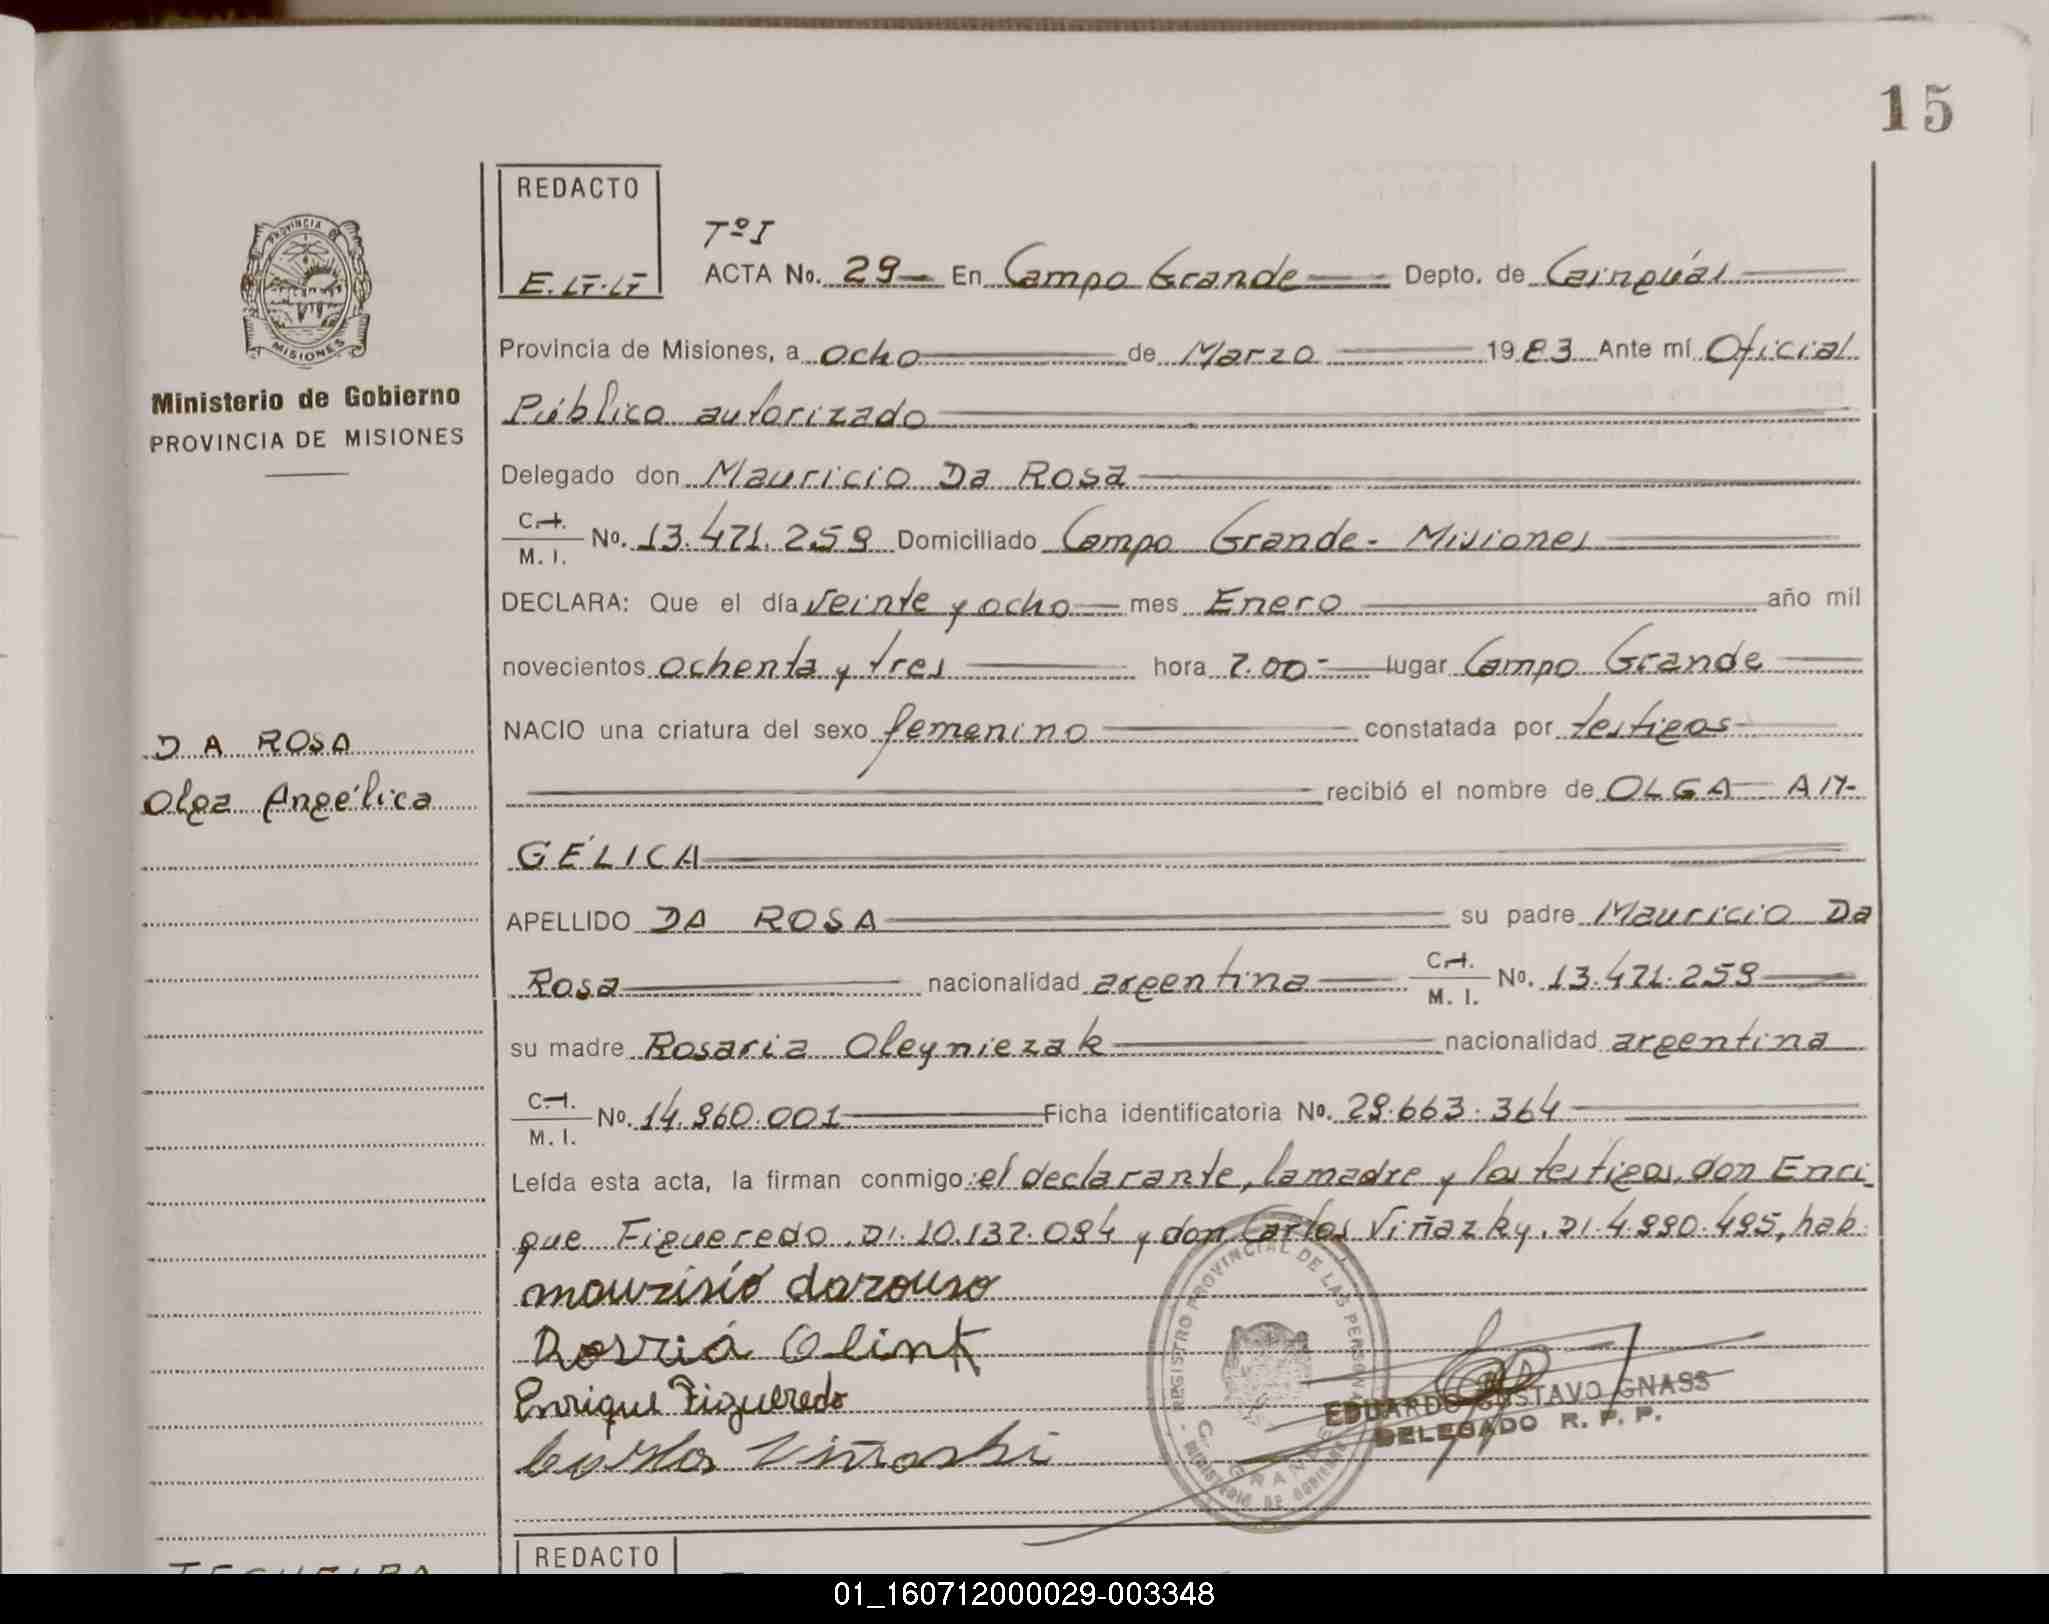 15
REDACTO
E.G.G.
PROVINCIA DE
MISIONES
Ministerio de Gobierno
PROVINCIA DE MISIONES
DA ROSA
Olga Angélica
Tº I
ACTA No. 29 En Campo Grande Depto. de Cainguás
Provincia de Misiones, a ocho de Marzo 1983 Ante mí Oficial
Público autorizado
Delegado don Mauricio Da Rosa
C.I. / M. I. No. 13.471.259 Domiciliado Campo Grande - Misiones
DECLARA: Que el día veinte y ocho mes Enero año mil
novecientos ochenta y tres hora 7.00- lugar Campo Grande
NACIO una criatura del sexo femenino constatada por testigos
recibió el nombre de OLGA AN-
GÉLICA
APELLIDO DA ROSA su padre Mauricio Da
Rosa nacionalidad argentina C.I. / M. I. No. 13.471.259
su madre Rosaria Oleyniezak nacionalidad argentina
C.I. / M. I. No. 14.960.001 Ficha identificatoria No. 29.663.364
Leída esta acta, la firman conmigo: el declarante, la madre y los testigos, don Enri-
que Figueredo, DI. 10.137.094 y don Carlos Viñazky, DI. 4.990.495, hab.
maurisio darouso
Rosria Olink
Enrique Figueredo
Carlos Viñaski
REGISTRO PROVINCIAL DE LAS PERSONAS
C. GRANDE
MINISTERIO DE GOBIERNO
EDUARDO GUSTAVO GNASS
DELEGADO R. P. P.
REDACTO
01_160712000029-003348